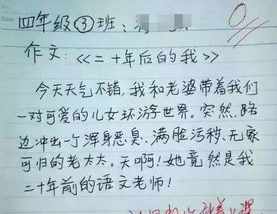 四年级③班:
0
作文:《二十年后的我》
今天天气不错,我和老婆带着我们
一对可爱的儿女环游世界。突然,路
边冲出一个浑身恶臭,满脸污秽,无家
可归的老太太。天啊!她竟然是我
二十年前的语文老师!